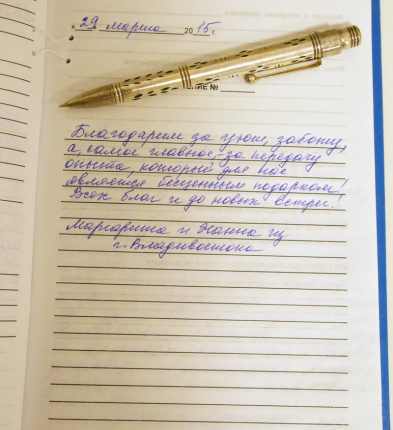 „29" марта 2015 г.
НИЕ №
Благодарим за уют, заботу,
а самое главное, за передачу
опыта, который для нас
является бесценным подарком!
Всех благ и до новых встреч!
Маргарита и Жанна из
г. Владивостока